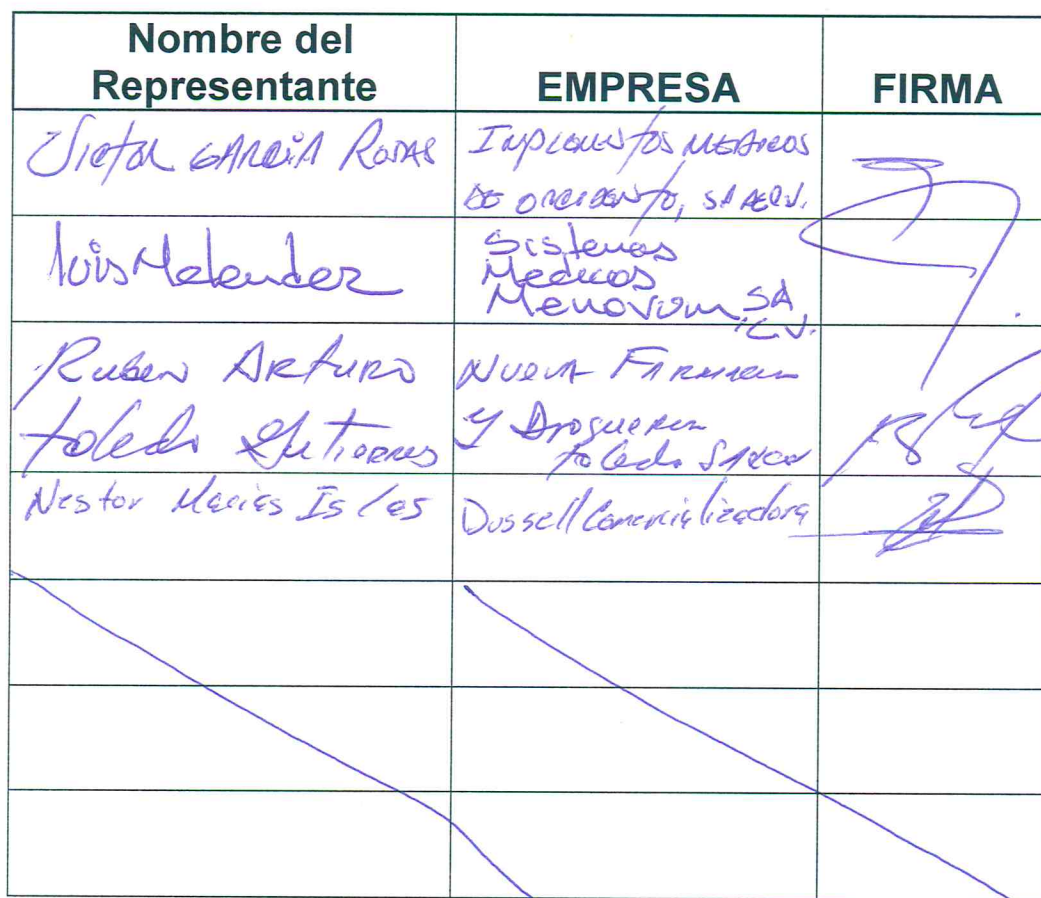 Nombre del
Representante
EMPRESA
FIRMA
Victor GARCIA ROSAS
IMPLEMENTOS MEDICOS
DE OCCIDENTE, SA DE CV.
Luis Melendez
Sistemas
Medicos
SA
C.V.
Ruben ARturo
toledo Gutierres
NUEVA FARMACIA
Y Drogueria
toledo SA DE CV
Nestor Macias Islas
Dussell Comercializadora